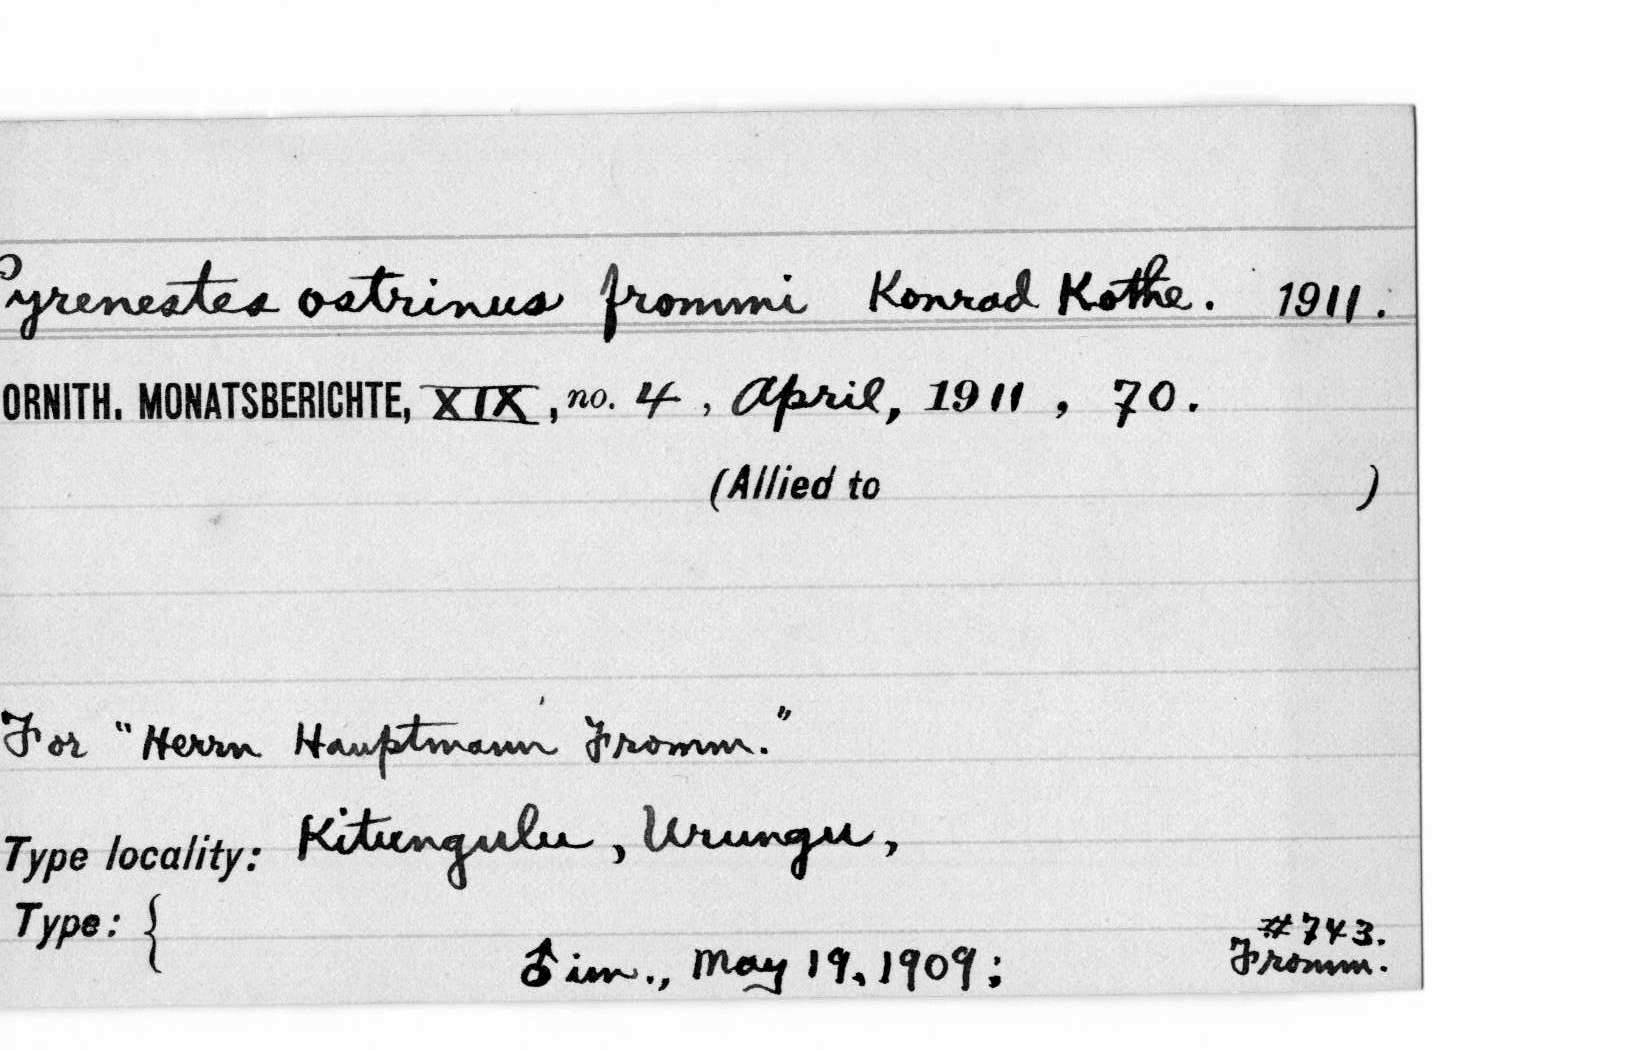 Pyrenestes ostrinus frommi Konrad Kothe. 1911.
ORNITH. MONATSBERICHTE, XIX, no. 4, April, 1911, 70.
(Allied to )
For "Herrn Hauptmann Fromm."
Type locality: Kitungulu, Urungu,
Type: {
♂ im., May 19, 1909; #743.
Fromm.